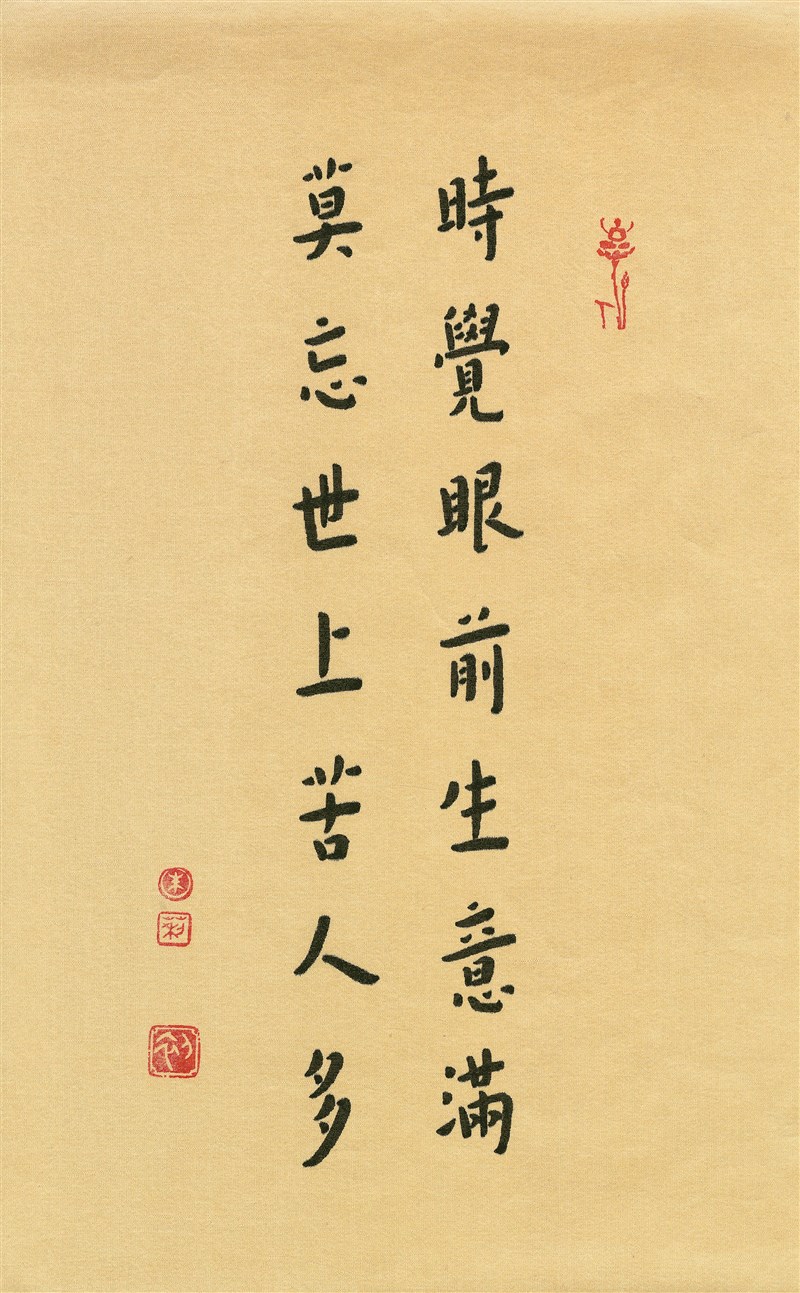 時覺眼前生意滿
莫忘世上苦人多